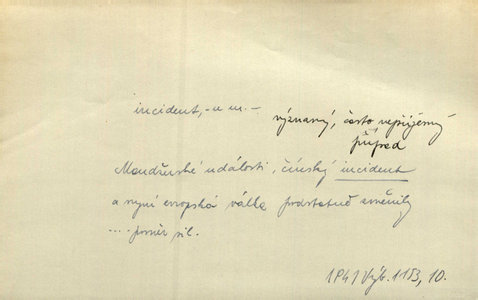 incident, -u m. -
významný, často nepříjemný
případ
Mandžuské události, čínský incident
a nyní evropská válka podstatně změnily
.... poměr sil.
1941 Výb. 1153, 10.